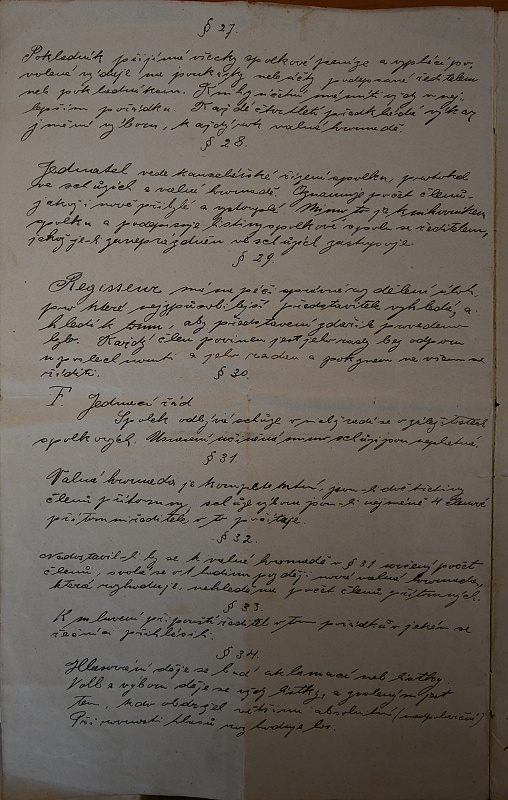 § 27.
Pokladník přijímá všecky spolkové peníze a vyplácí po-
volená vydání na poukázky neb účty podepsané ředitelem
neb pokladníkem. Knihy účetní má míti vždy v nej-
lepším pořádku. Každé čtvrtletí předkládá výkaz
jmění výboru, každý rok valné hromadě.
§ 28.
Jednatel vede kancelářské řízení spolku, protokol
ve schůzích a valné hromadě. Oznamuje počet členů
jakož i nově přibylé a vystouplé. Mimo to je knihovníkem
spolku a podepisuje listiny spolkové spolu se ředitelem,
jakož je-li zaneprázdněn ve schůzích zastupuje.
§ 29.
Regisseur má na péči správné rozdělení úloh,
pro které nejzpůsobilejší představitele vyhledá, a
hledí k tomu, aby představení zdařile provedeno
bylo. Každý člen povinen jest jeho rady bez odporu
uposlechnouti a jeho radou a pokynem ve všem se
říditi.
§ 30.
F. Jednací řád.
Spolek odbývá schůze v nichž radí se o záležitostech
spolkových. Usnesení učiněná mimo schůzi jsou neplatná.
§ 31.
Valná hromada je kompetentní, jsou-li dvě třetiny
členů přítomny, schůze výboru jsou-li nejméně 4 členové
přítomni ředitele v to počítaje.
§ 32.
Nedostavil-li by se k valné hromadě v § 31 určený počet
členů, svolá se o 1 hodinu později nová valná hromada,
která rozhoduje nehledě na počet členů přítomných.
§ 33.
K mluvení připouští ředitel v tom pořádku v jakém se
řečníci přihlásili.
§ 34.
Hlasování děje se buď aklamací neb lístky.
Volba výboru děje se vždy lístky, a zvoleným jest
ten, kdo obdržel většinu absolutní (nadpoloviční)
Při rovnosti hlasů rozhoduje los.